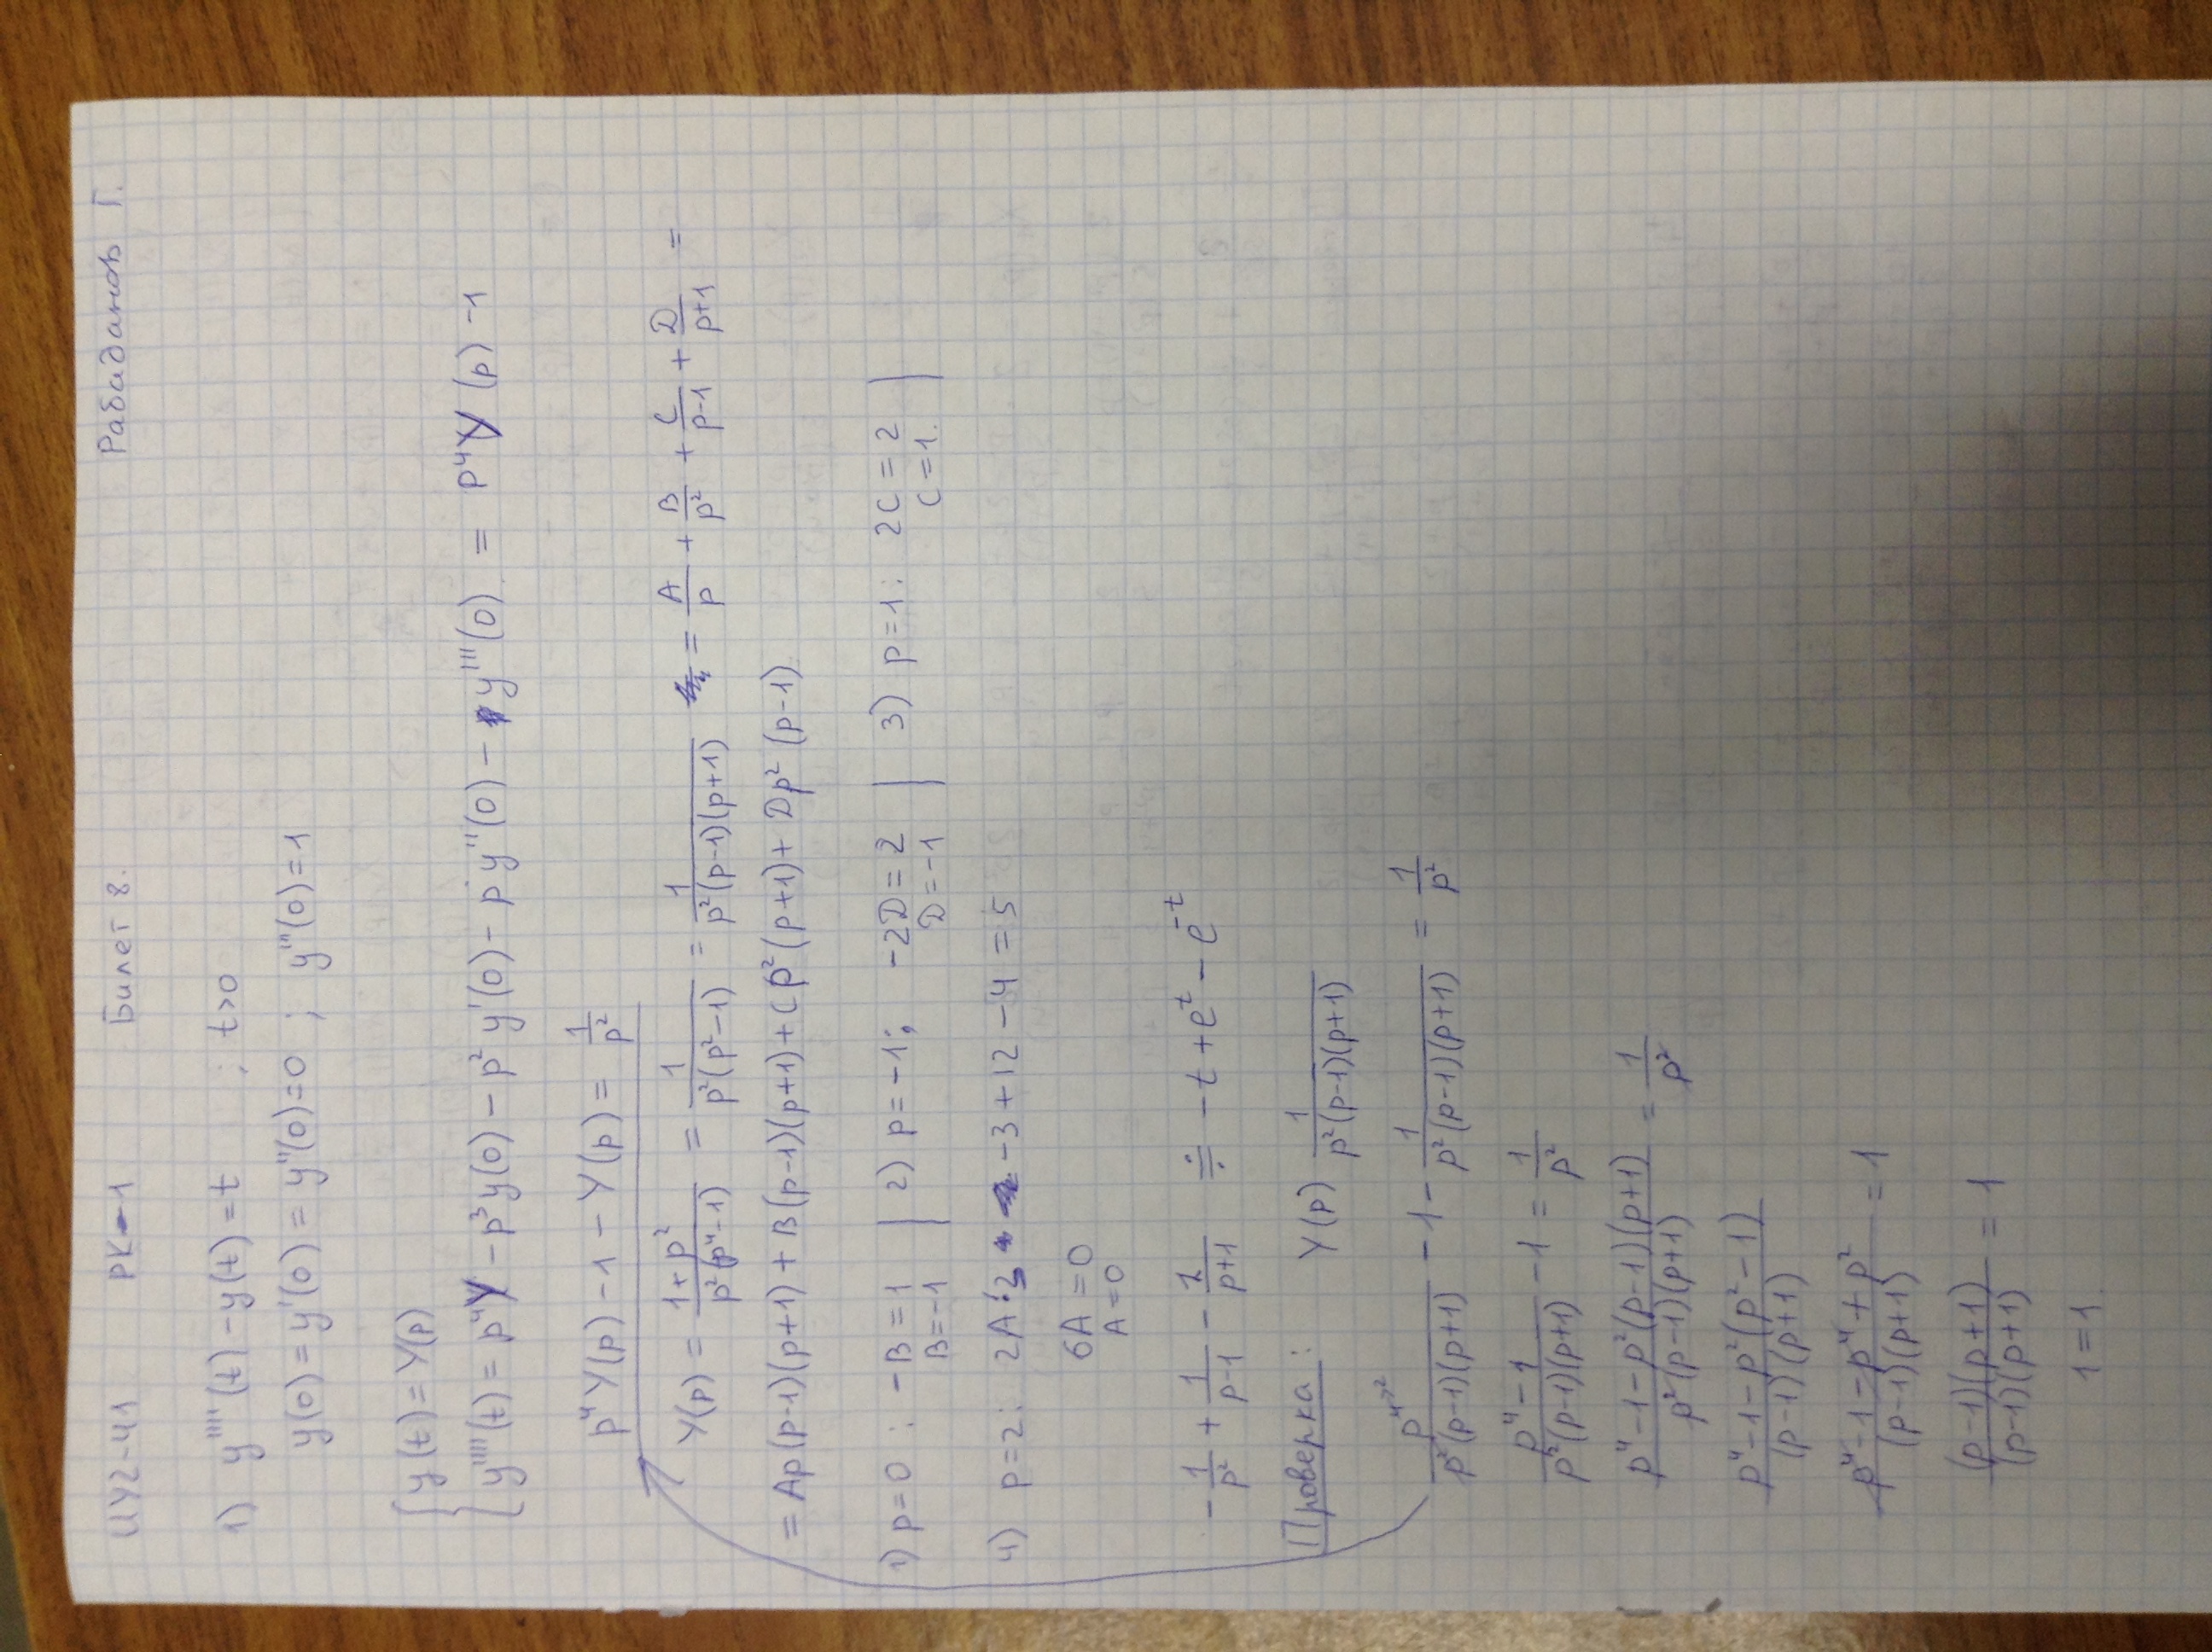 ИУ2-41 РК-1 Билет 8. Рабаданов Г.
1) y''''(t) - y(t) = t ; t>0
y(0) = y'(0) = y''(0) = 0 ; y'''(0) = 1
{ y(t) = Y(p)
{ y''''(t) = p⁴Y - p³y(0) - p²y'(0) - py''(0) - y'''(0) = p⁴Y(p) - 1
p⁴Y(p) - 1 - Y(p) = 1/p²
Y(p) = (1+p²)/(p²(p⁴-1)) = 1/(p²(p²-1)) = 1/(p²(p-1)(p+1)) = A/p + B/p² + C/(p-1) + D/(p+1) =
= Ap(p-1)(p+1) + B(p-1)(p+1) + Cp²(p+1) + Dp²(p-1)
1) p=0 : -B=1 | 2) p=-1; -2D=2 | 3) p=1: 2C=2 |
B=-1 | D=-1 | C=1. |
4) p=2: 2A·3 - 3 + 12 - 4 = 5
6A=0
A=0
-1/p² + 1/(p-1) - 1/(p+1) ≓ -t + eᵗ - e⁻ᵗ
Проверка: Y(p) 1/(p²(p-1)(p+1))
p⁴/(p²(p-1)(p+1)) - 1 - 1/(p²(p-1)(p+1)) = 1/p²
(p⁴-1)/(p²(p-1)(p+1)) - 1 = 1/p²
(p⁴-1-p²(p-1)(p+1))/(p²(p-1)(p+1)) = 1/p²
(p⁴-1-p²(p²-1))/((p-1)(p+1))
(p⁴-1-p⁴+p²)/((p-1)(p+1)) = 1
((p-1)(p+1))/((p-1)(p+1)) = 1
1=1.